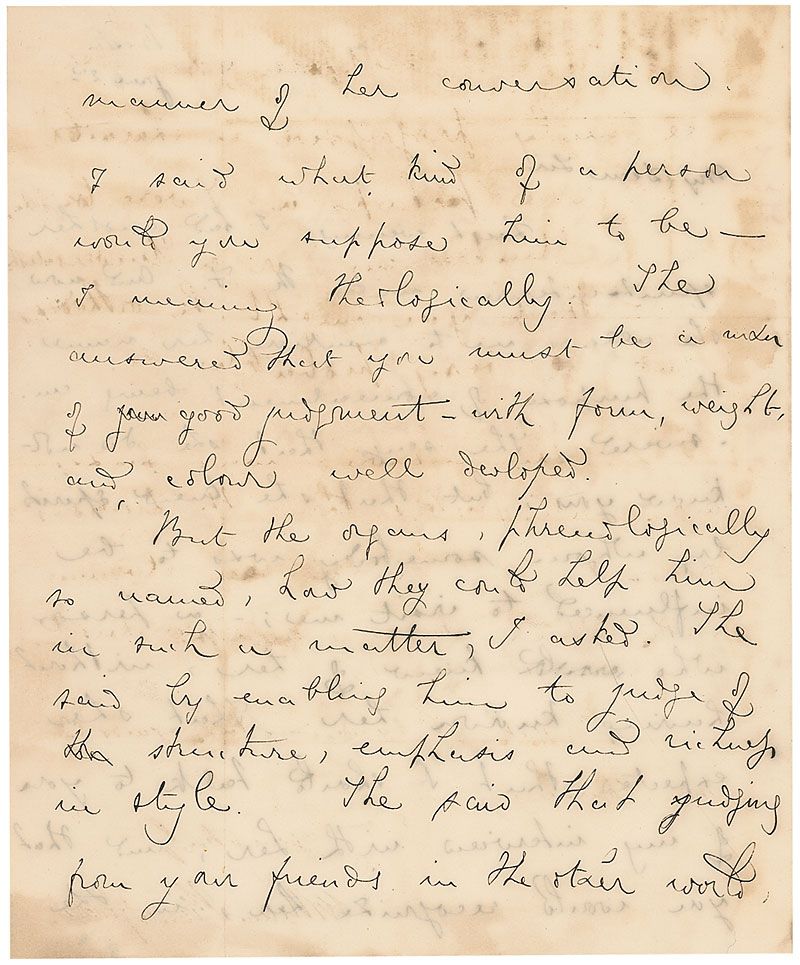 manner of her conversation.
I said what kind of a person
would you suppose him to be —
I meaning theologically. She
answered that you must be a man
of good judgment – with form, weight,
and, colour well devloped.
But the organs, phrenologically
so named, how they could help him
in such a matter, I asked. She
said by enabling him to judge of
the structure, emphasis and richness
in style. She said that judging
from your friends in the other world,